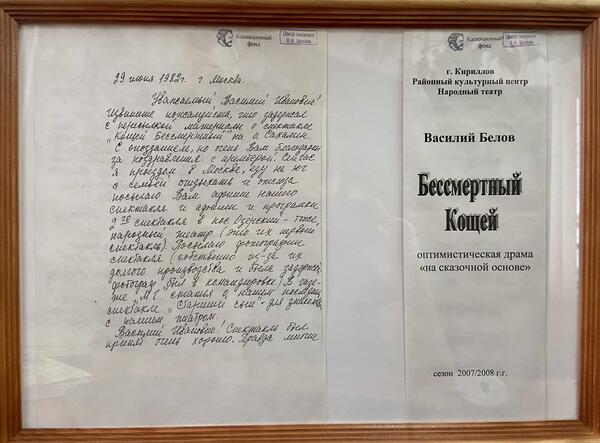 Коллекционный
фонд
Центр писателя
В.И. Белова
29 июня 1982г. г. Москва.
Уважаемый Василий Иванович!
Извините пожалуйста, что задержал
с пересылкой материалы о спектакле
"Кощей Бессмертный" на о. Сахалин.
С опозданием, но очень Вам благодарен
за поздравления с премьерой. Сейчас
я проездом в Москве, еду на юг
с семьей отдыхать и отсюда
посылаю Вам афиши нашего
спектакля и афиши и программ
2го спектакля в пос. Озерский - тоже,
народный театр (это их первый
спектакль). Посылаю фотографии
спектакля (собственно из-за их
долгого производства и была задержка,
фотограф был в командировке). В газе-
те "МГ" статья о нашем последнем
спектакле "Старший сын" - для знакомства
с нашим театром.
Василий Иванович! Спектакль был
принят очень хорошо. Правда многие
Коллекционный
фонд
Центр писателя
В.И. Белова
г. Кириллов
Районный культурный центр
Народный театр
Василий Белов
Бессмертный
Кощей
оптимистическая драма
«на сказочной основе»
сезон 2007/2008 г.г.